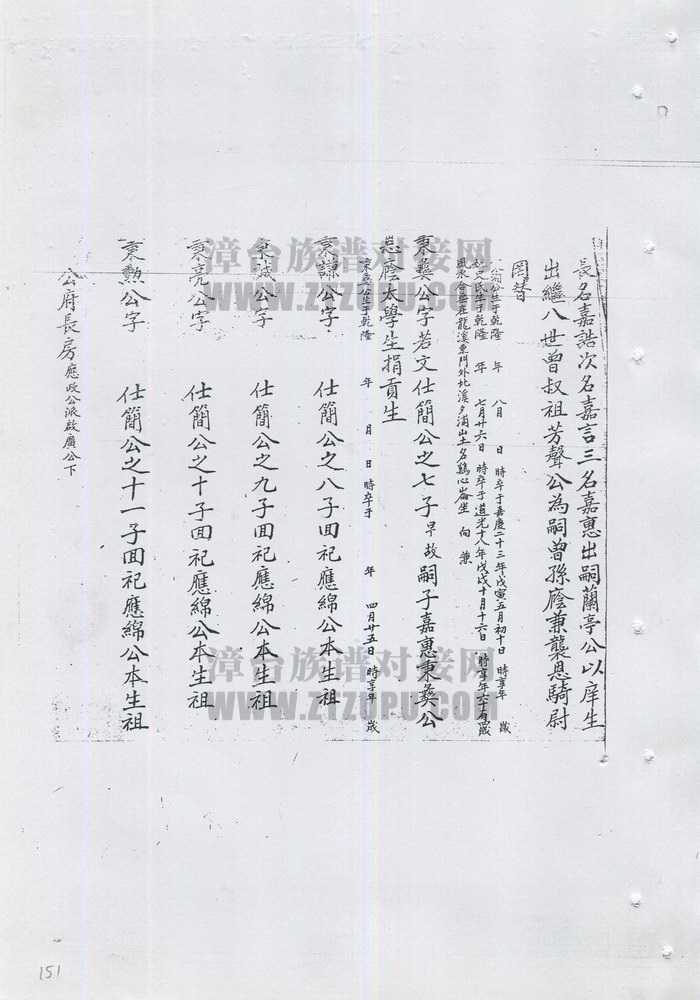 長名嘉誥次名嘉言三名嘉惠出嗣蘭亭公以庠生
出繼八世曾叔祖芳聲公為嗣曾孫廕兼襲恩騎尉
罔替
公生于乾隆 年 八月 日 時卒于嘉慶二十三年戊寅五月初十日 時享年 歲
氏生于乾隆 年 七月廿六日 時卒于道光十八年戊戌十月十六日 時享年六十 歲
風水合葬在龍溪東門外北溪夕浦山土名鷄心崙坐 向 兼
秉彝公字若文仕簡公之七子早故嗣子嘉惠秉彝公
恩廕太學生捐貢生
秉彝公生于乾隆 年 月 日 時卒于 年 四月廿五日 時享年 歲
秉謙公字 仕簡公之八子回祀應綿公本生祖
秉誠公字 仕簡公之九子回祀應綿公本生祖
秉亮公字 仕簡公之十子回祀應綿公本生祖
秉勲公字 仕簡公之十一子回祀應綿公本生祖
公府長房應政公派啟廣公下
漳台族谱对接网
WWW.ZTZUPU.COM
漳台族谱对接网
WWW.ZTZUPU.COM
151